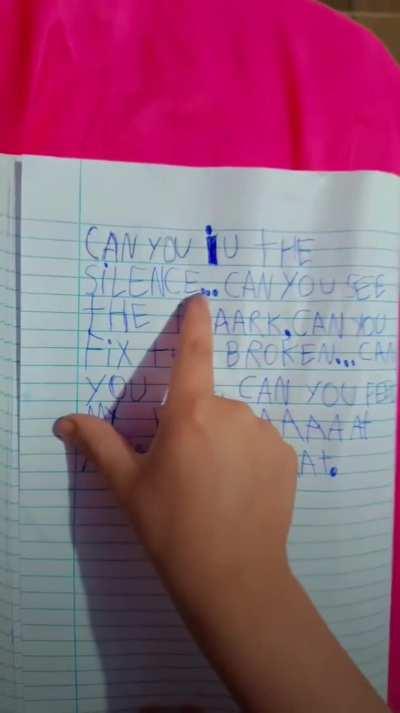 CAN YOU iU tHE
SiLENCE... CAN YOU SEE
tHE AARK, CAN YOU
FiX BROKEN... CAN
YOU CAN YOU FEEL
MY AAAAAt
At.